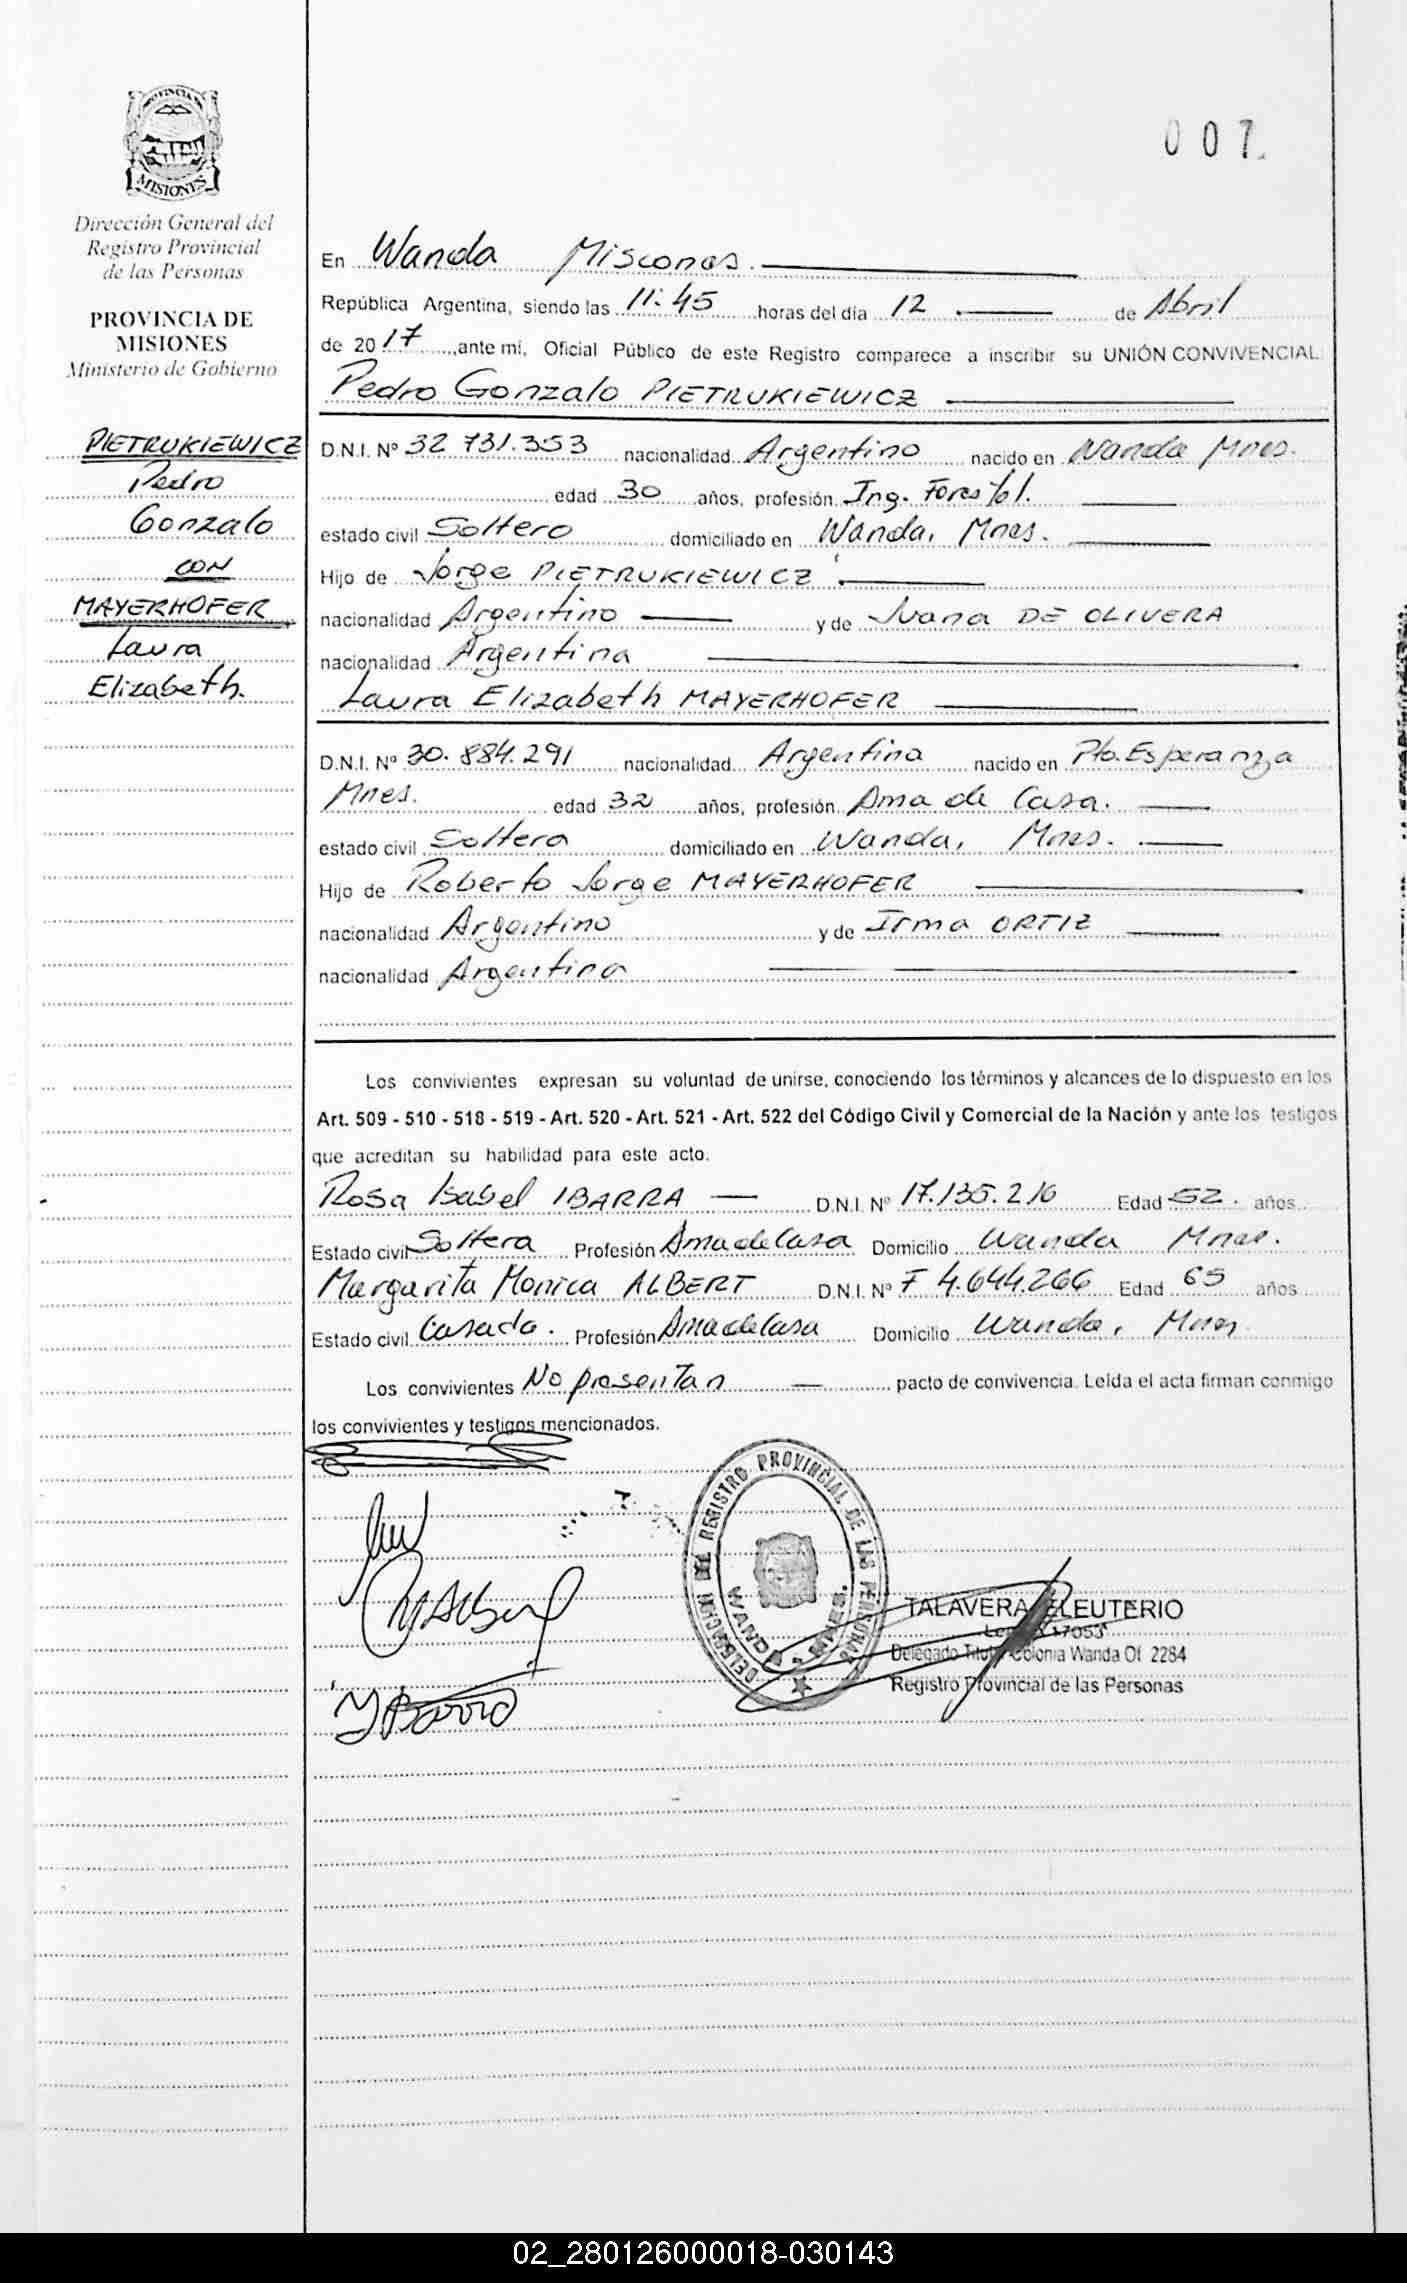 PROVINCIA DE
MISIONES
Dirección General del
Registro Provincial
de las Personas
PROVINCIA DE
MISIONES
Ministerio de Gobierno
PIETRUKIEWICZ
Pedro
Gonzalo
CON
MAYERHOFER
Laura
Elizabeth.
007
En Wanda Misiones.
República Argentina, siendo las 11:45 horas del día 12 de Abril
de 2017, ante mí, Oficial Público de este Registro comparece a inscribir su UNIÓN CONVIVENCIAL:
Pedro Gonzalo PIETRUKIEWICZ
D.N.I. Nº 32 731.353 nacionalidad Argentino nacido en Wanda Mnes.
edad 30 años, profesión Ing. Forestal.
estado civil Soltero domiciliado en Wanda, Mnes.
Hijo de Jorge PIETRUKIEWICZ
nacionalidad Argentino y de Juana DE OLIVERA
nacionalidad Argentina
Laura Elizabeth MAYERHOFER
D.N.I. Nº 30.884.291 nacionalidad Argentina nacido en Pto. Esperanza
Mnes. edad 32 años, profesión Ama de Casa.
estado civil Soltera domiciliado en Wanda, Mnes.
Hijo de Roberto Jorge MAYERHOFER
nacionalidad Argentino y de Irma ORTIZ
nacionalidad Argentina
Los convivientes expresan su voluntad de unirse, conociendo los términos y alcances de lo dispuesto en los
Art. 509 - 510 - 518 - 519 - Art. 520 - Art. 521 - Art. 522 del Código Civil y Comercial de la Nación y ante los testigos
que acreditan su habilidad para este acto.
Rosa Isabel IBARRA D.N.I. Nº 17.135.216 Edad 52. años
Estado civil Soltera Profesión Ama de Casa Domicilio Wanda Mnes.
Margarita Monica ALBERT D.N.I. Nº F 4.644.266 Edad 65 años
Estado civil Casada. Profesión Ama de Casa Domicilio Wanda, Mnes
Los convivientes No presentan pacto de convivencia. Leída el acta firman conmigo
los convivientes y testigos mencionados.
DELEGACION DEL REGISTRO PROVINCIAL DE LAS PERSONAS
WANDA - MNES.
TALAVERA ELEUTERIO
17053
Delegado Titular Colonia Wanda Of 2284
Registro Provincial de las Personas
02_280126000018-030143